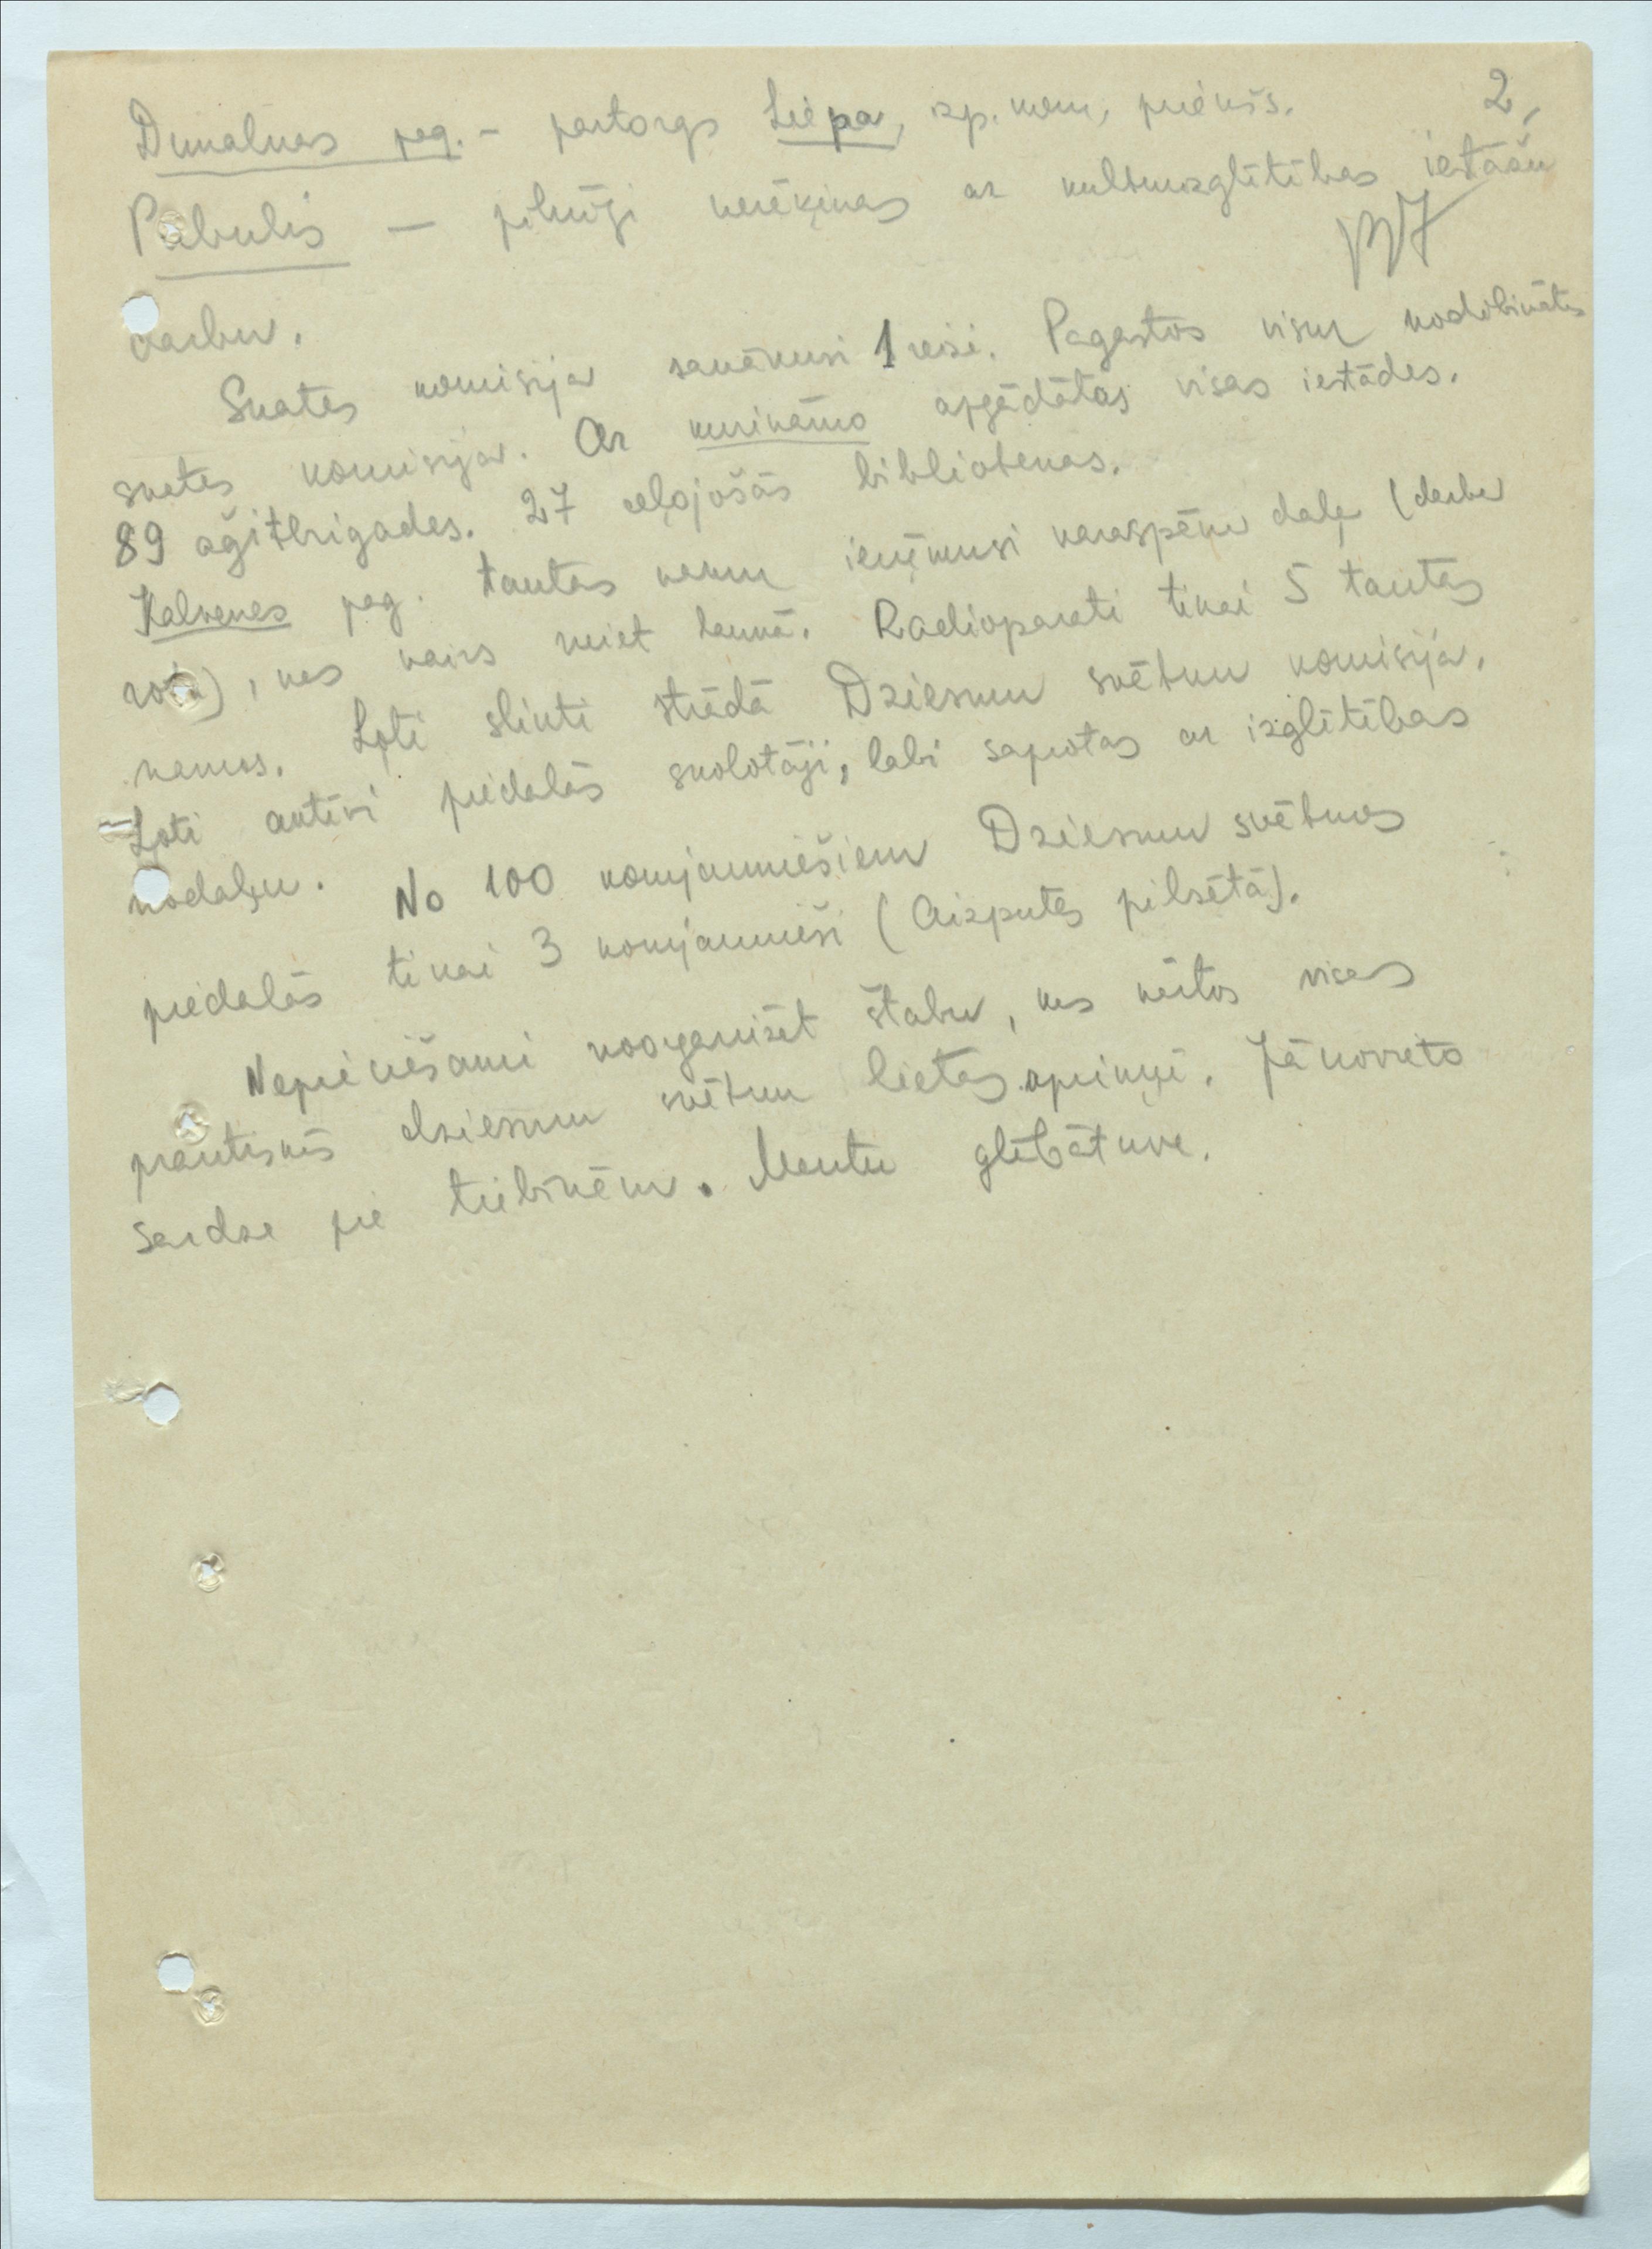 2,
Dunalkas pag. - partorgs Liepa, izp. kom, priekšs.
Pabulis — pilnīgi nerēķinas ar kulturizglītības iestāžu
darbu.
Skates komisija sanākusi 1 reizi. Pagastos visur nodibinātas
skates komisijas. Ar kurināmo apgādātas visas iestādes.
89 aģitbrigades. 27 ceļojošās bibliotekas.
Kalvenes pag. tautas namu ieņēmusi karaspēku daļa (darba
rota), kas vairs neiet laukā. Radioparati tikai 5 tautas
namos. Ļoti slikti strādā Dziesmu svētku komisija.
Ļoti aktīvi piedalās skolotāji, labi saprotas ar izglītības
nodaļu. No 100 komjauniešiem Dziesmu svētkos
piedalās tikai 3 komjaunieši (Aizputes pilsētā).
Nepieciešami noorganizēt štabu, kas kārtos visas
praktiskās dziesmu svētku lietas apriņķī. Jānovieto
sardze pie tribīnēm. Mantu glābātuve.